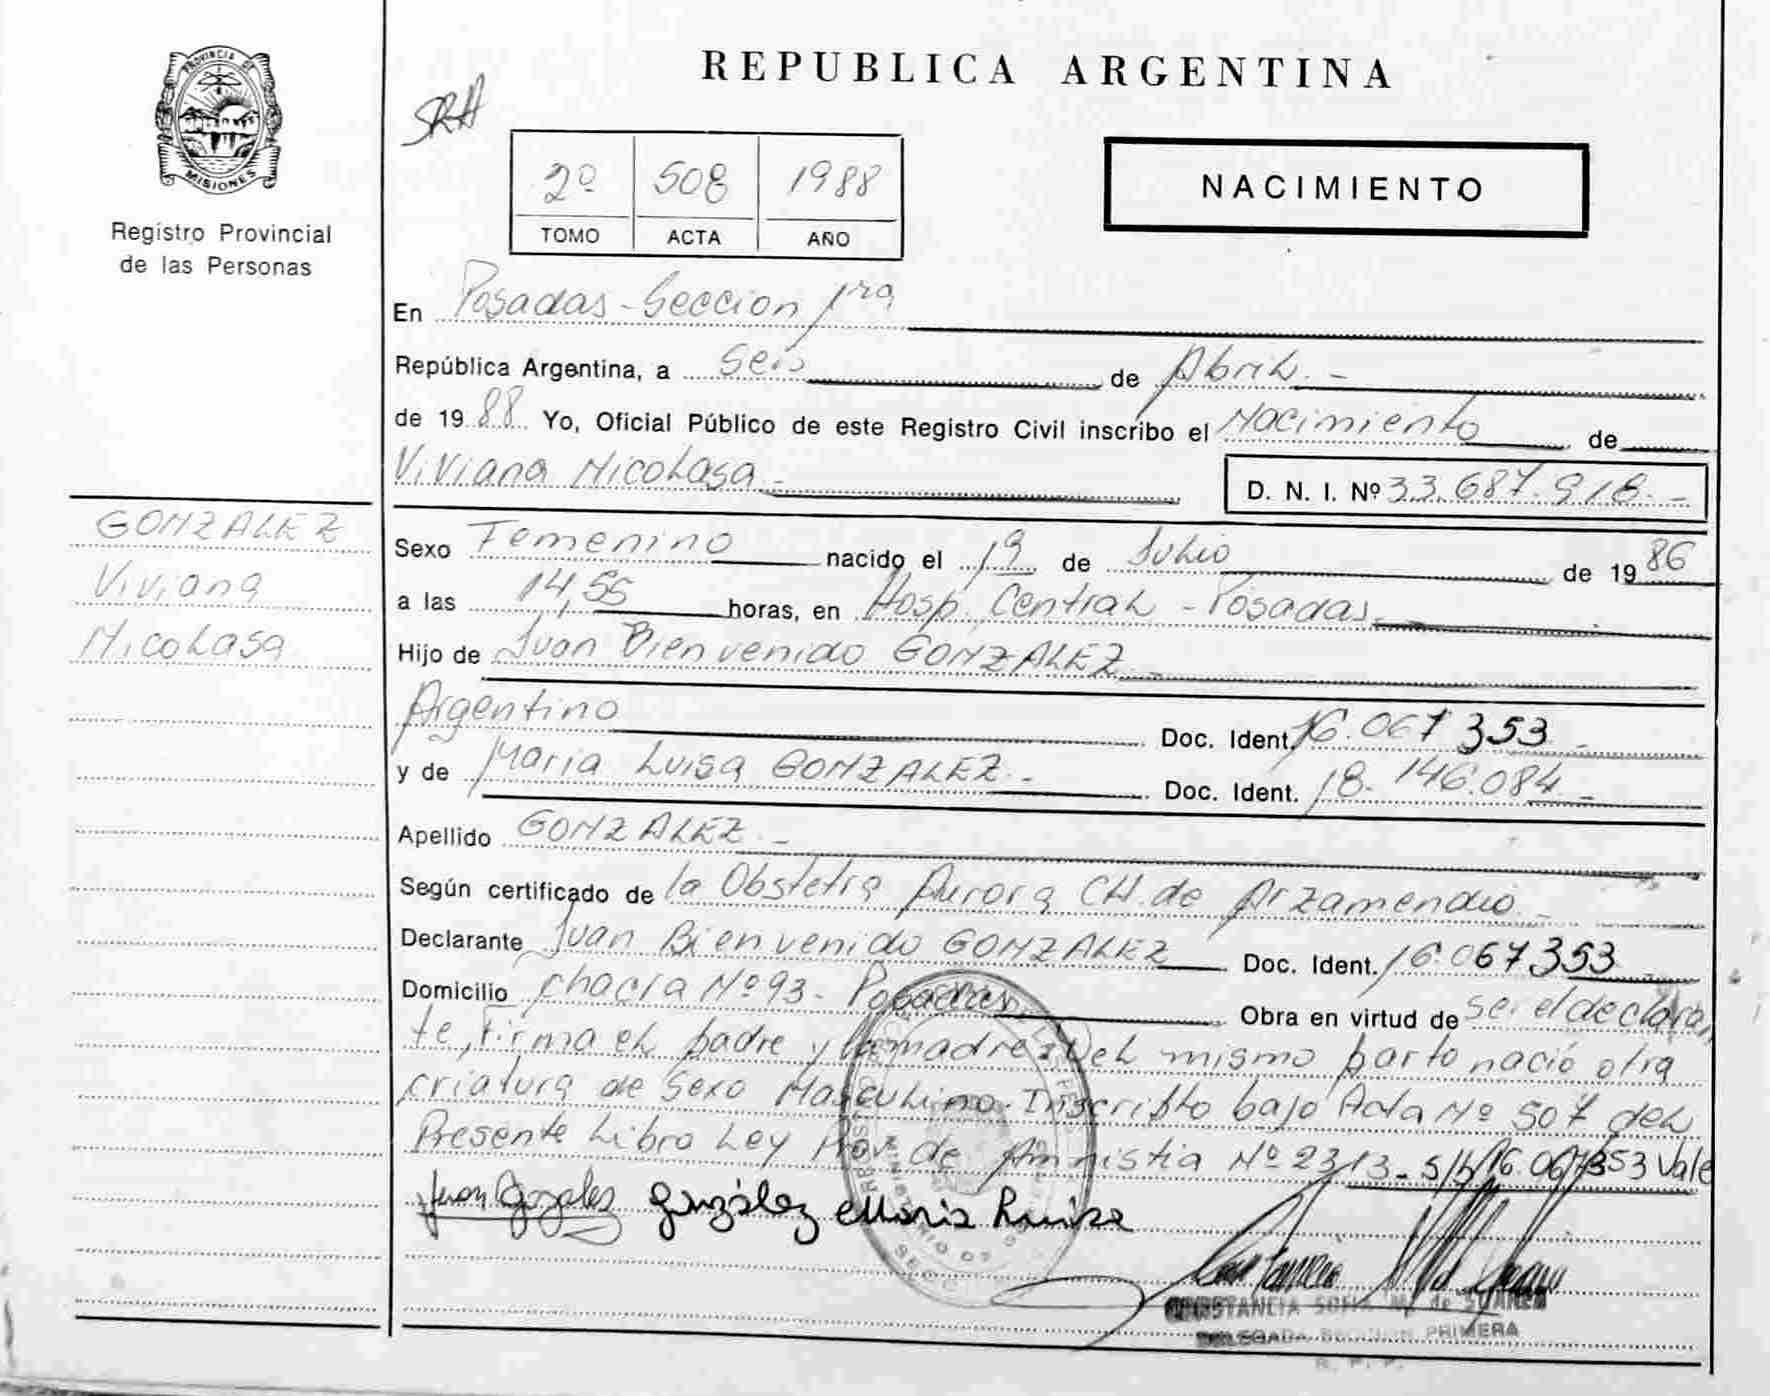 REPUBLICA ARGENTINA
PROVINCIA DE
MISIONES
Registro Provincial
de las Personas
SRA
2º 508 1988
TOMO ACTA AÑO
NACIMIENTO
En Posadas - Seccion 1ra
República Argentina, a Seis de Abril. -
de 1988 Yo, Oficial Público de este Registro Civil inscribo el Nacimiento de
Viviana Nicolasa - D. N. I. Nº 33.687.918. -
GONZALEZ
Viviana
Nicolasa
Sexo Femenino nacido el 19 de Julio de 1986
a las 14,55 horas, en Hosp. Central - Posadas.
Hijo de Juan Bienvenido GONZALEZ -
Argentino Doc. Ident. 16.067 353 -
y de Maria Luisa GONZALEZ. - Doc. Ident. 18.146.084 -
Apellido GONZALEZ -
Según certificado de la Obstetra Aurora CH. de Arzamendio -
Declarante Juan Bienvenido GONZALEZ Doc. Ident. 16.067 353
Domicilio chacra Nº 93 - Posadas Obra en virtud de ser el declaran
te, Firma el padre y la madre: Del mismo parto nació otra
criatura de Sexo Masculino. Inscripto bajo Acta Nº 507 del
Presente Libro Ley Prov. de Amnistia Nº 2313 - S/b/16.067353 Vale
Juan Gozalez González Maria Luisa
CONSTANCIA SOFIA M. de SUAREZ
DELEGADA SECCION PRIMERA
R. P. P.